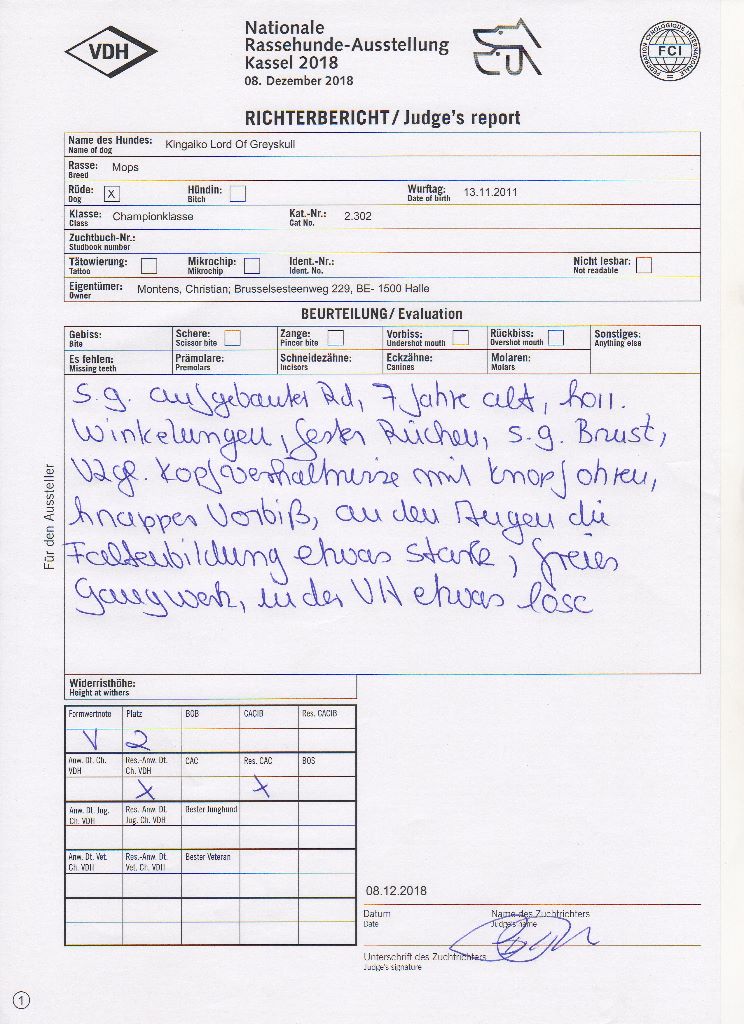 VDH
Nationale
Rassehunde-Ausstellung
Kassel 2018
08. Dezember 2018
FEDERATION CYNOLOGIQUE INTERNATIONALE
FCI
RICHTERBERICHT / Judge's report
Name des Hundes: Kingaiko Lord Of Greyskull
Name of dog
Rasse: Mops
Breed
Rüde: X Hündin: Wurftag: 13.11.2011
Dog Bitch Date of birth
Klasse: Championklasse Kat.-Nr.: 2.302
Class Cat No.
Zuchtbuch-Nr.:
Studbook number
Tätowierung: Mikrochip: Ident.-Nr.: Nicht lesbar:
Tattoo Mikrochip Ident. No. Not readable
Eigentümer: Montens, Christian; Brusselsesteenweg 229, BE- 1500 Halle
Owner
BEURTEILUNG / Evaluation
Gebiss: Schere: Zange: Vorbiss: Rückbiss: Sonstiges:
Bite Scissor bite Pincer bite Undershot mouth Overshot mouth Anything else
Es fehlen: Prämolare: Schneidezähne: Eckzähne: Molaren:
Missing teeth Premolars Incisors Canines Molars
Für den Aussteller
s.g. aufgebauter Rd, 7 Jahre alt, korr.
Winkelungen, fester Rücken, s.g. Brust,
vzgl. Kopfverhältnisse mit Knopfohren,
knapper Vorbiß, an den Augen die
Faltenbildung etwas stark, freies
Gangwerk, in der VH etwas lose
Widerristhöhe:
Height at withers
Formwertnote Platz BOB CACIB Res. CACIB
V 2
Anw. Dt. Ch. Res.-Anw. Dt. CAC Res. CAC BOS
VDH Ch. VDH
X X
Anw. Dt. Jug. Res. Anw. Dt. Bester Junghund
Ch. VDH Jug. Ch. VDH
Anw. Dt. Vet. Res.-Anw. Dt. Bester Veteran
Ch. VDH Vet. Ch. VDH
08.12.2018
Datum Name des Zuchtrichters
Date Judge's name
Unterschrift des Zuchtrichters
Judge's signature
1